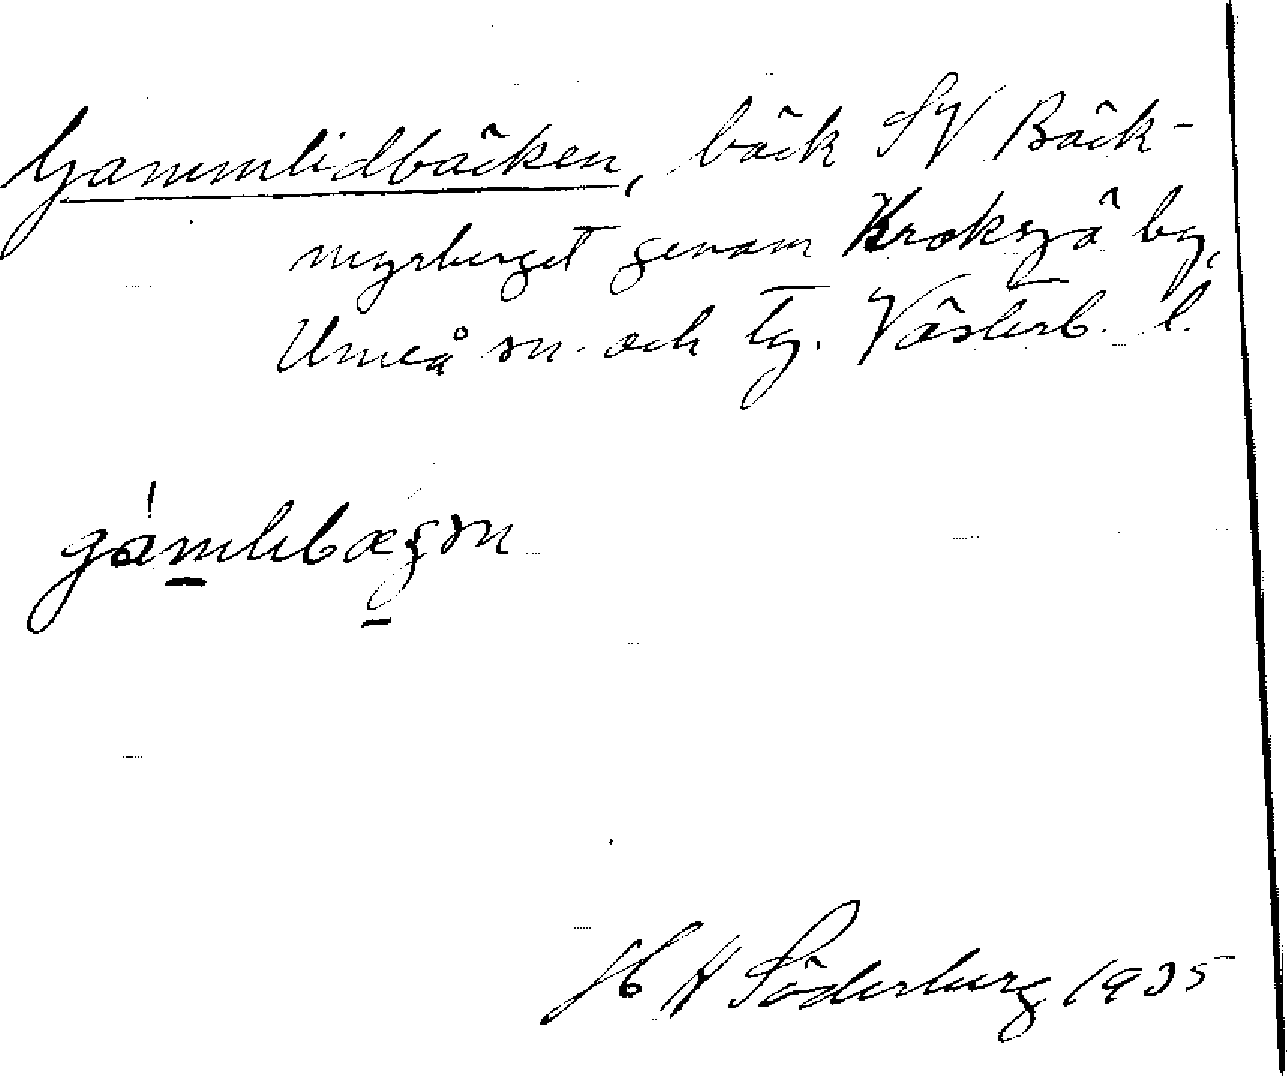 Gammlidbäcken, bäck SV Bäck-
myrberget genom Kroksjö by,
Umeå sn. och tg. Västerb. l.
H A Söderberg 1935